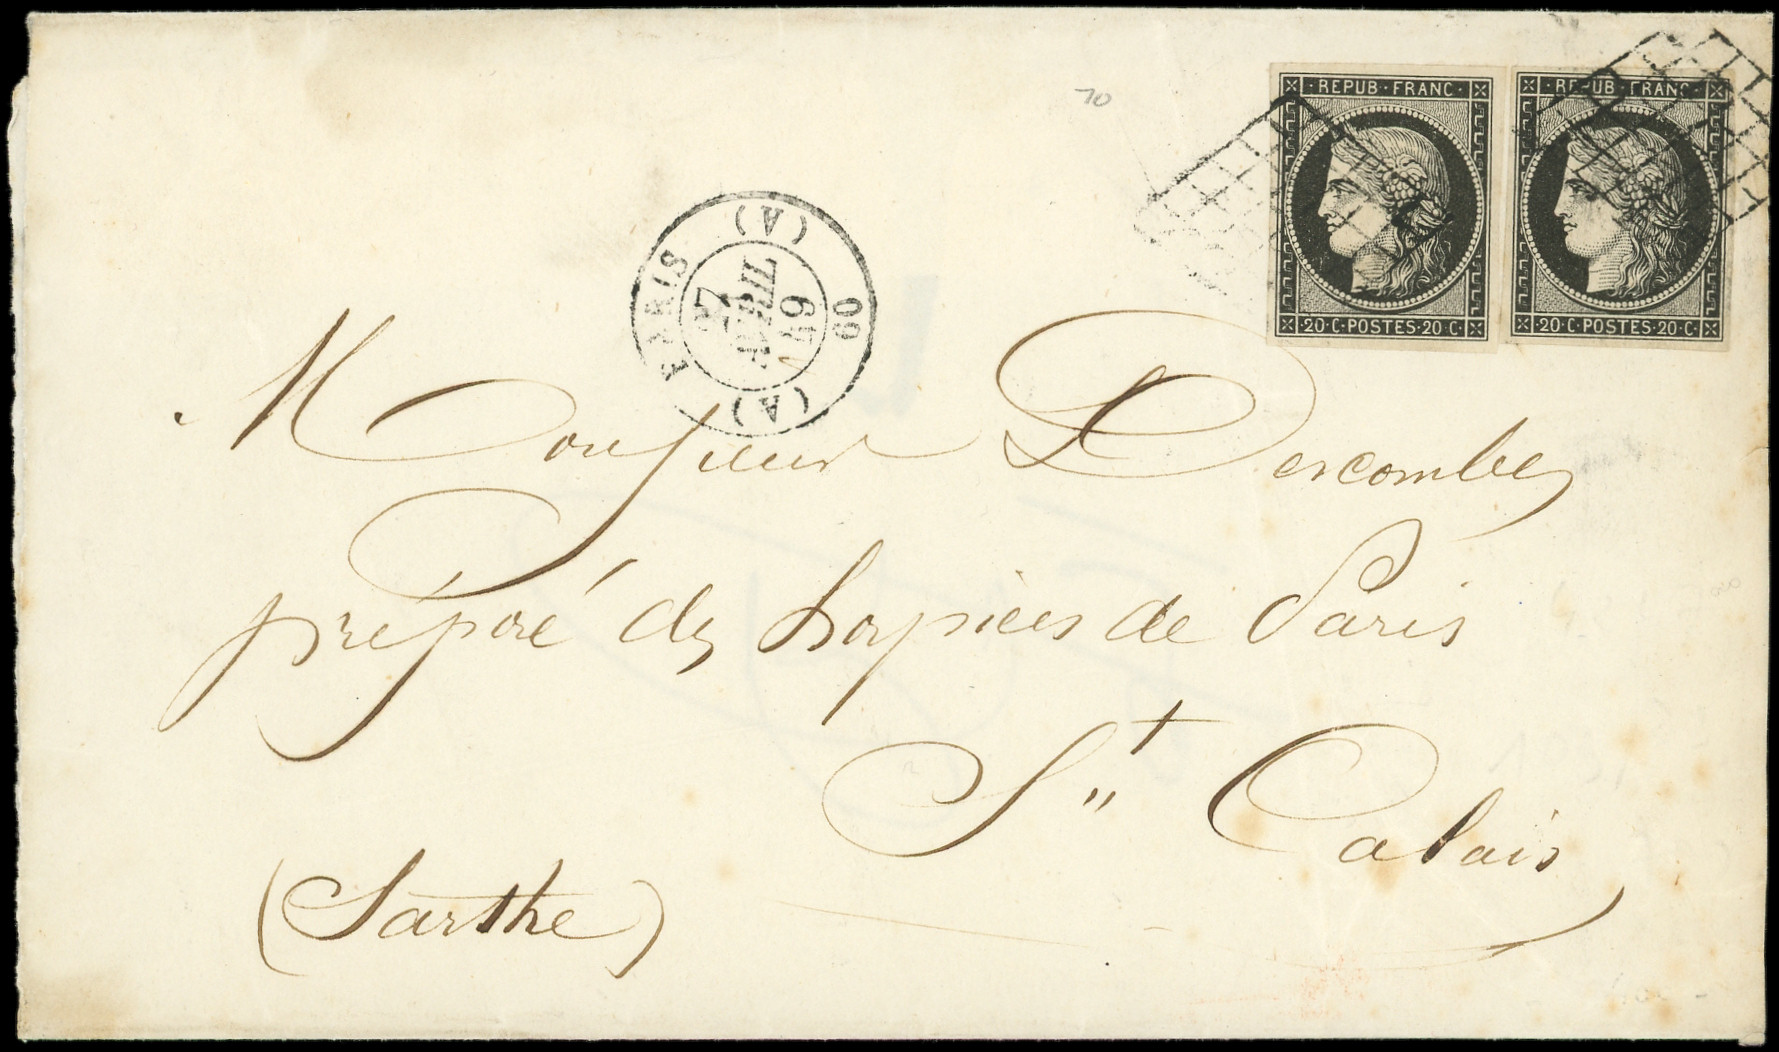 70
REPUB·FRANC·
REPUB·FRANC·
20·C·POSTES·20·C·
20·C·POSTES·20·C·
PARIS (A) 60 (A)
AVRIL
49
Monsieur Descombes
préposé des hospices de Paris
St Calais
(Sarthe)